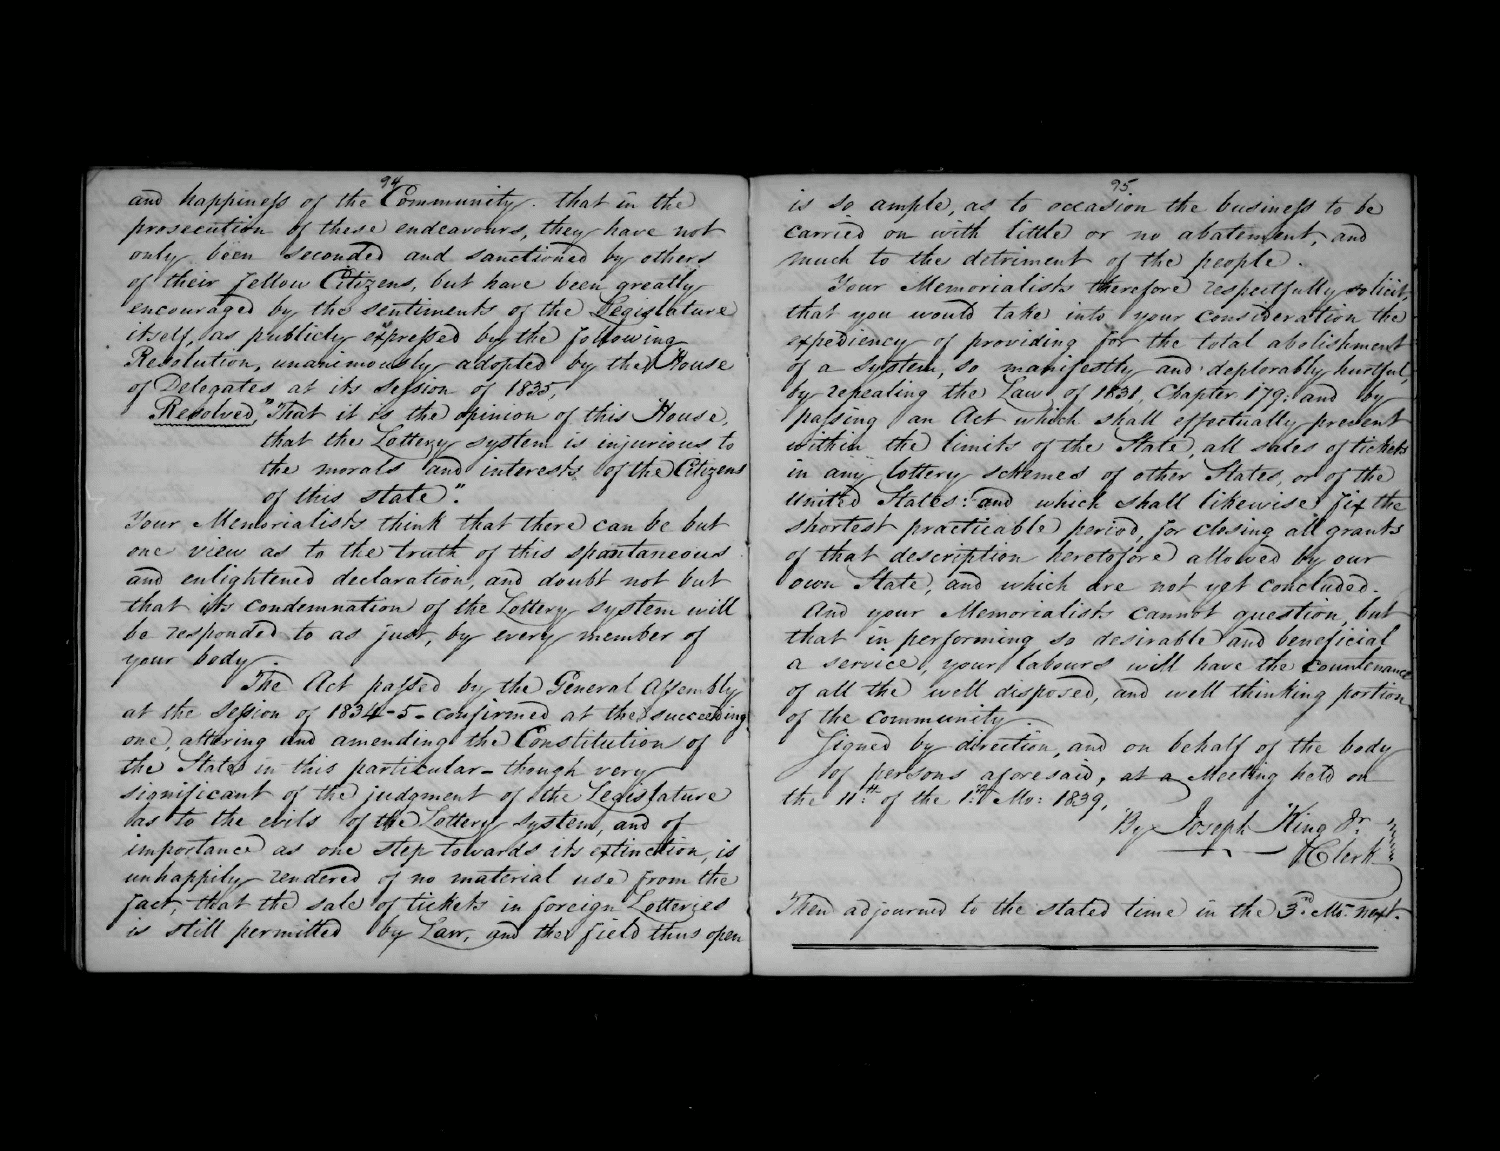 94
and happiness of the Community. that in the
prosecution of these endeavours, they have not
only been seconded and sanctioned by others
of their fellow Citizens, but have been greatly
encouraged by the sentiments of the Legislature
itself, as publicly expressed by the following
Resolution, unanimously adopted by the House
of Delegates at its session of 1835,
Resolved, "That it is the opinion of this House,
that the Lottery system is injurious to
the morals and interests of the Citizens
of this state".
Your Memorialists think that there can be but
one view as to the truth of this spontaneous
and enlightened declaration, and doubt not but
that its condemnation of the Lottery system will
be responded to as just, by every member of
your body.
The Act passed by the General Assembly
at the session of 1834-5- confirmed at the succeeding
one, altering and amending the Constitution of
the State in this particular- though very
significant of the judgment of the Legislature
as to the evils of the Lottery system, and of
importance as one step towards its extinction, is
unhappily rendered of no material use from the
fact, that the sale of tickets in foreign Lotteries
is still permitted by Law, and the field thus open
95
is so ample, as to occasion the business to be
carried on with little or no abatement, and
much to the detriment of the people.
Your Memorialists therefore respectfully solicit,
that you would take into your consideration the
expediency of providing for the total abolishment
of a system, so manifestly and deplorably hurtful,
by repealing the Law of 1831, Chapter 179; and by
passing an Act which shall effectually prevent
within the limits of the State, all sales of tickets
in any lottery schemes of other States, or of the
United States: and which shall likewise fix the
shortest practicable period, for closing all grants
of that description heretofore allowed by our
own State, and which are not yet concluded.
And your Memorialists cannot question, but
that in performing so desirable and beneficial
a service, your labours will have the countenance
of all the well disposed, and well thinking portion
of the community.
Signed by direction, and on behalf of the body
of persons aforesaid, at a Meeting held on
the 11th of the 1st Mo: 1839,
By Joseph King Jr
Clerk
Then adjourned to the stated time in the 3rd Mo. next.